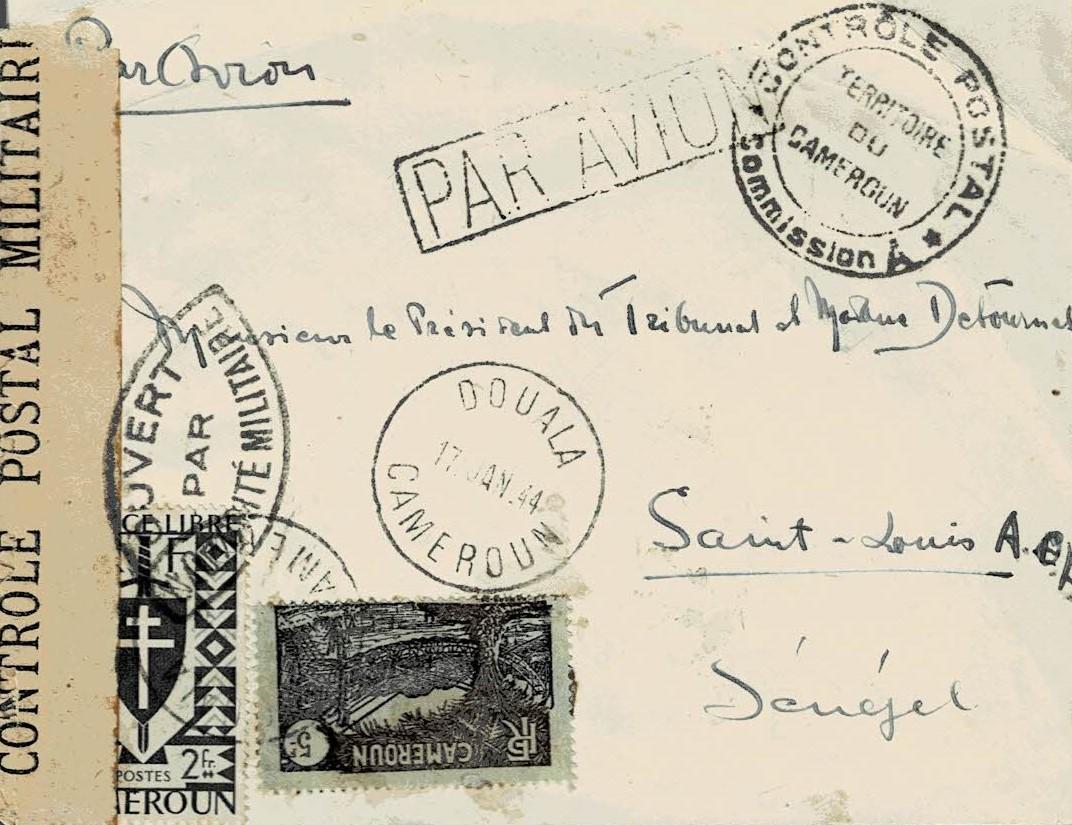 CONTROLE POSTAL MILITAIR
Par Avion
PAR AVION
CONTRÔLE POSTAL
TERRITOIRE
DU
CAMEROUN
Commission A
Monsieur le Président du Tribunal et Madame Detournet
OUVERT
PAR
ITÉ MILITAIRE
DOUALA
17 JAN.44
CAMEROUN
Saint-Louis
Sénégal
CE LIBRE
F
POSTES
2 fr.
MEROUN
CAMEROUN
RF
CAMEROUN
5 F